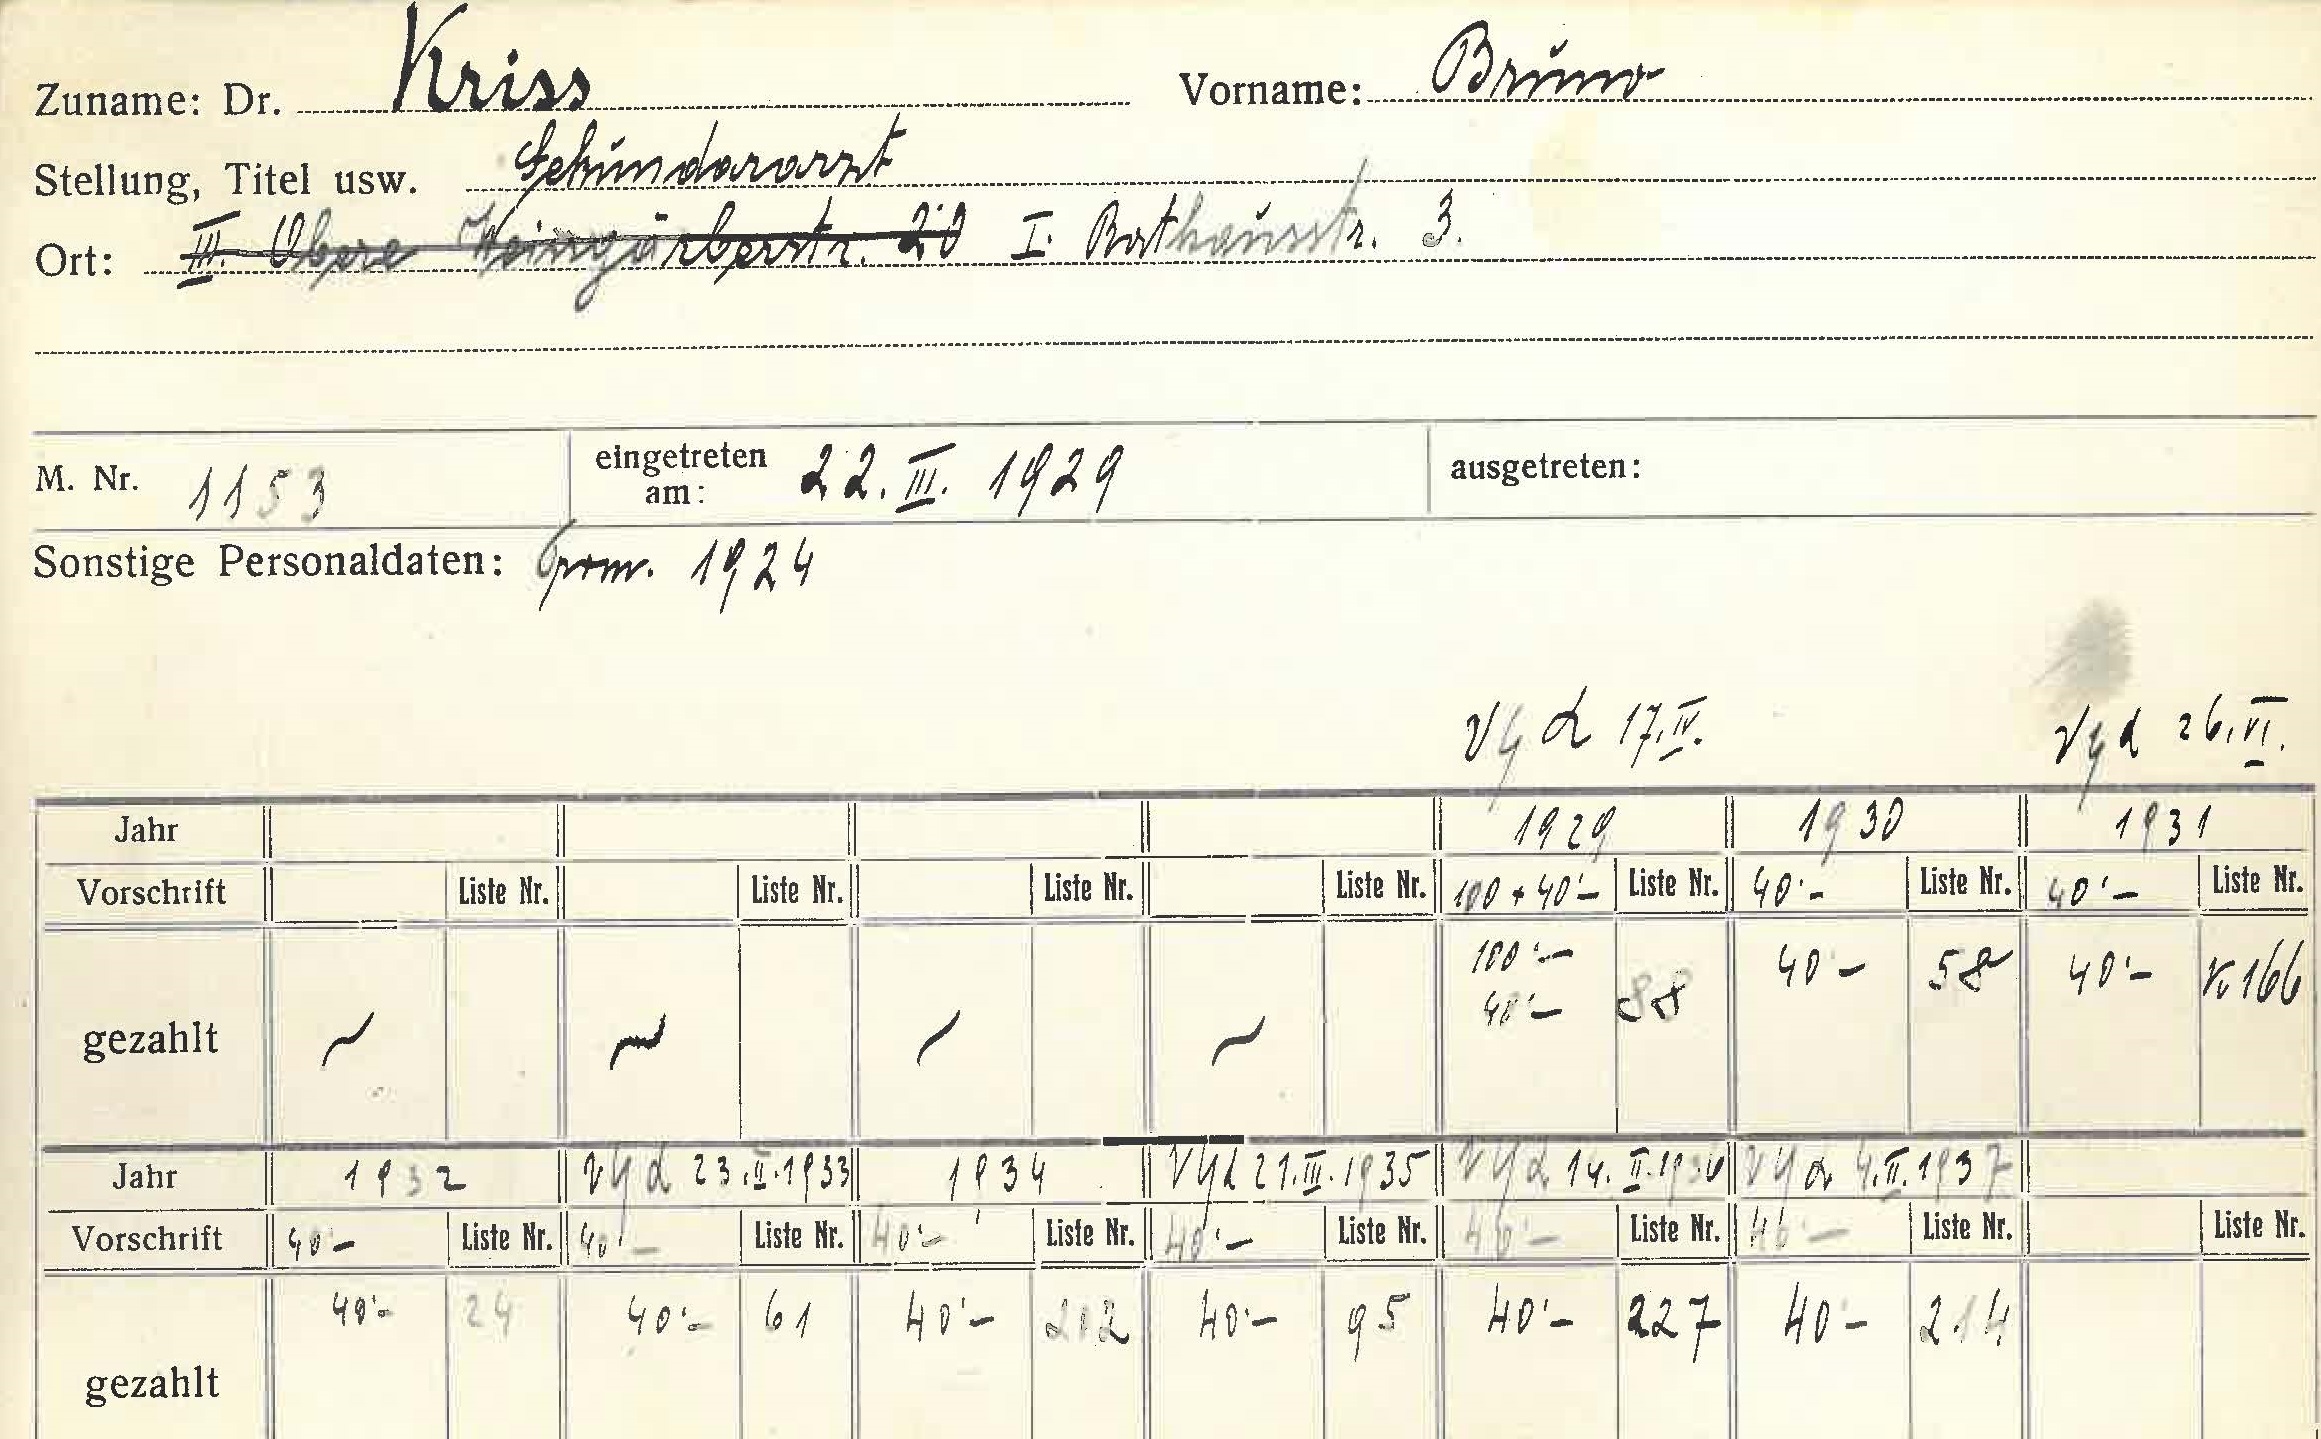 Zuname: Dr. Kriss Vorname: Bruno
Stellung, Titel usw. Sekundararzt
Ort: III. Obere Weingärberstr. 20 I. Rathausstr. 3.
M. Nr. 1153 eingetreten am: 22. III. 1929 ausgetreten:
Sonstige Personaldaten: prom. 1924
17. IV. 26. VI.
Jahr 1929 1930 1931
Vorschrift Liste Nr. Liste Nr. Liste Nr. Liste Nr. 100 + 40'– Liste Nr. 40'– Liste Nr. 40'– Liste Nr.
100'– 40– 58 40'– K 166
gezahlt 40'– 88
Jahr 1932 23. II. 1933 1934 21. III. 1935 14. II. 1936 4. II. 1937
Vorschrift 40– Liste Nr. 40'– Liste Nr. 40'– Liste Nr. 40'– Liste Nr. 40'– Liste Nr. 40'– Liste Nr. Liste Nr.
40'– 24 40'– 61 40'– 202 40'– 95 40'– 227 40– 214
gezahlt